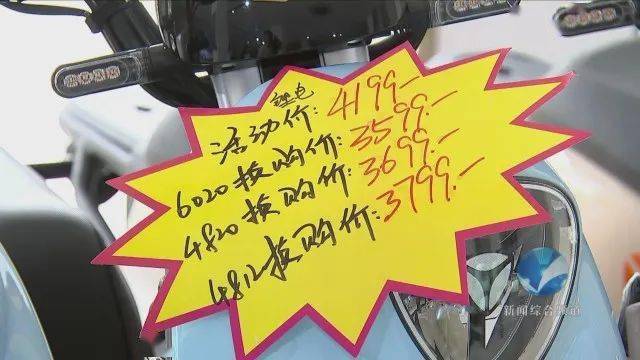 锂电
活动价:4199.-
6020换购价:3599.-
4820换购价:3699.-
4812换购价:3799.-
新闻综合频道